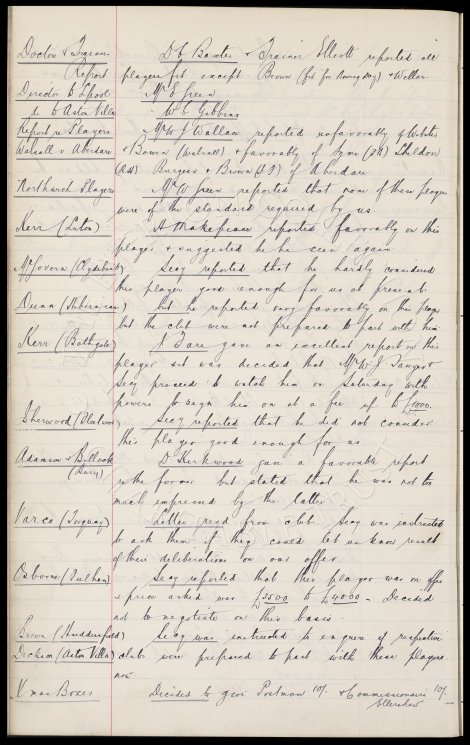 Doctor & Trainers Dr C. Bowles & Trainer Elliott reported all
Report players fit except Brown (fit for Boxing Day) & Weller.
Director to L'pool Mr E Green
" to Aston Villa " W C Gibbins
Report re Players Mr W J Wallau reported unfavorably of Webster
Walsall v Aberdare & Bowen (Walsall) & favorably of Syme (I.R) Sheldon
(O.R) Burgess & Brown of Aberdare
Northwich Players Mr W Green reported that none of these players
were of the standard required by us
Kerr (Luton) A Makepeace reported favorably on this
player & suggested he be seen again.
McGovern (Clydebank) Secy reported that he hardly considered
this player good enough for us at present.
Dunn (Hibernian) but he reported very favorably on this player
but the club were not prepared to part with him
Kerr (Bathgate) J. Fare gave an excellent report on this
player & it was decided that Mr W J Sawyer &
Secy proceed to watch him on Saturday with
powers to sign him on at a fee up to £1000.
Sherwood (Fleetwood) Secy reported that he did not consider
this player good enough for us.
Adamson & Bullock (Bury) D Kirkwood gave a favorable report
re the former but stated that he was not too
much impressed by the latter
Varco (Torquay) Letter read from club. Secy was instructed
to ask them if they could let us know result
of their deliberations on our offer.
Osborne (Fulham) Secy reported that this player was on offer
& price asked was £3500 to £4000 - Decided
not to negotiate on this basis.
Brown (Huddersfield) Secy was instructed to enquire if respective
Dickson (Aston Villa) clubs were prepared to part with these players
now
Xmas Boxes Decided to give Postman 10/- & Commissionaire 10/-
Ellershaw